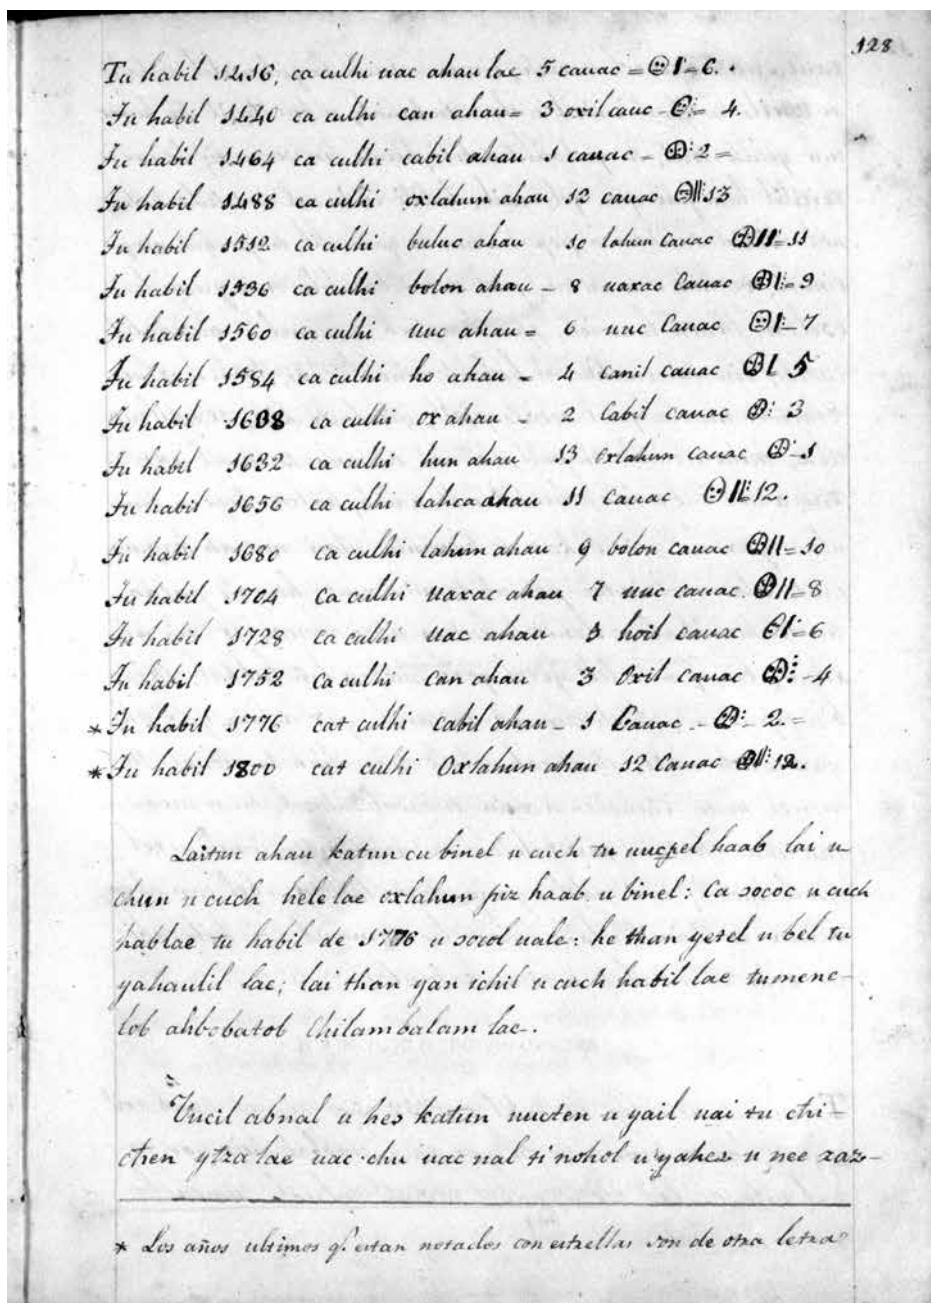 128
Tu habil 1416, ca culhi uac ahau lae 5 cauac = I = 6.
Tu habil 1440 ca culhi can ahau = 3 oxil cauc - 4.
Tu habil 1464 ca culhi cabil ahau 1 cauac - : 2 =
Tu habil 1488 ca culhi oxlahun ahau 12 cauac II 13
Tu habil 1512 ca culhi buluc ahau 10 lahun Cauac II = 11
Tu habil 1536 ca culhi bolon ahau - 8 uaxac Cauac I = 9
Tu habil 1560 ca culhi uuc ahau = 6 uuc Cauac I - 7
Tu habil 1584 ca culhi ho ahau - 4 canil cauac I 5
Tu habil 1608 ca culhi ox ahau - 2 cabil cauac : 3
Tu habil 1632 ca culhi hun ahau 13 oxlahun cauac - 1
Tu habil 1656 ca culhi lahca ahau 11 cauac II 12.
Tu habil 1680 ca culhi lahun ahau 9 bolon cauac II = 10
Tu habil 1704 ca culhi uaxac ahau 7 uuc cauac. II = 8
Tu habil 1728 ca culhi uac ahau 5 hoil cauac I = 6
Tu habil 1752 ca culhi can ahau 3 Oxil cauac - 4
* Tu habil 1776 cat culhi cabil ahau - 1 Cauac - : 2. =
* Tu habil 1800 cat culhi Oxlahun ahau 12 Cauac II 12.
Laitun ahau katun cu binel u cuch tu uucpel haab lai u
chun u cuch hele lae oxlahun piz haab u binel: Ca oococ u cuch
hablae tu habil de 1776 u oocol uale: he than yetel u bel tu
yahaulil lae; lai than yan ichil u cuch habil lae tumene-
lob ahbobatob Chilambalam lae.
Vucil abnal u heo katun uucten u yail uai tu chi-
chen ytza lae uac chu uac nal ti nohol u yahez u nee zaz-
* Los años ultimos q.e estan notados con estrellas son de otra letra